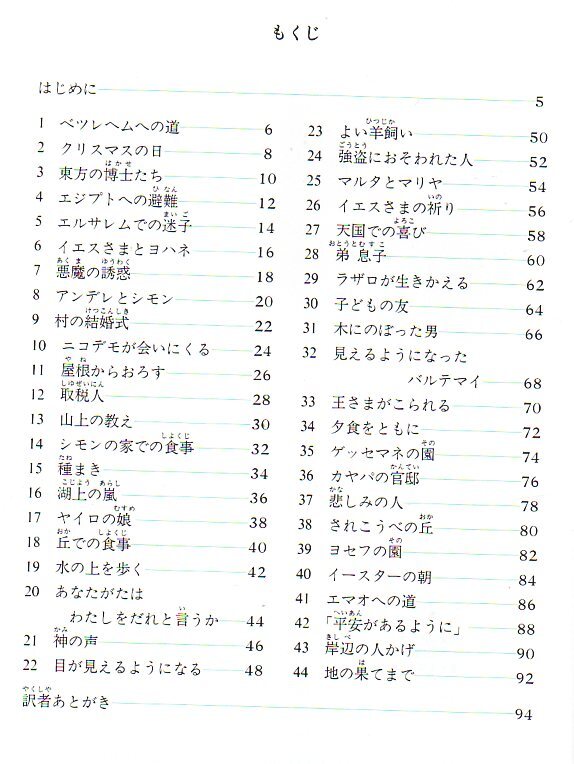 もくじ
はじめに 5
1 ベツレヘムへの道 6
2 クリスマスの日 8
3 東方の博士たち 10
4 エジプトへの避難 12
5 エルサレムでの迷子 14
6 イエスさまとヨハネ 16
7 悪魔の誘惑 18
8 アンデレとシモン 20
9 村の結婚式 22
10 ニコデモが会いにくる 24
11 屋根からおろす 26
12 取税人 28
13 山上の教え 30
14 シモンの家での食事 32
15 種まき 34
16 湖上の嵐 36
17 ヤイロの娘 38
18 丘での食事 40
19 水の上を歩く 42
20 あなたがたは
わたしをだれと言うか 44
21 神の声 46
22 目が見えるようになる 48
23 よい羊飼い 50
24 強盗におそわれた人 52
25 マルタとマリヤ 54
26 イエスさまの祈り 56
27 天国での喜び 58
28 弟息子 60
29 ラザロが生きかえる 62
30 子どもの友 64
31 木にのぼった男 66
32 見えるようになった
バルテマイ 68
33 王さまがこられる 70
34 夕食をともに 72
35 ゲッセマネの園 74
36 カヤパの官邸 76
37 悲しみの人 78
38 されこうべの丘 80
39 ヨセフの園 82
40 イースターの朝 84
41 エマオへの道 86
42 「平安があるように」 88
43 岸辺の人かげ 90
44 地の果てまで 92
訳者あとがき 94